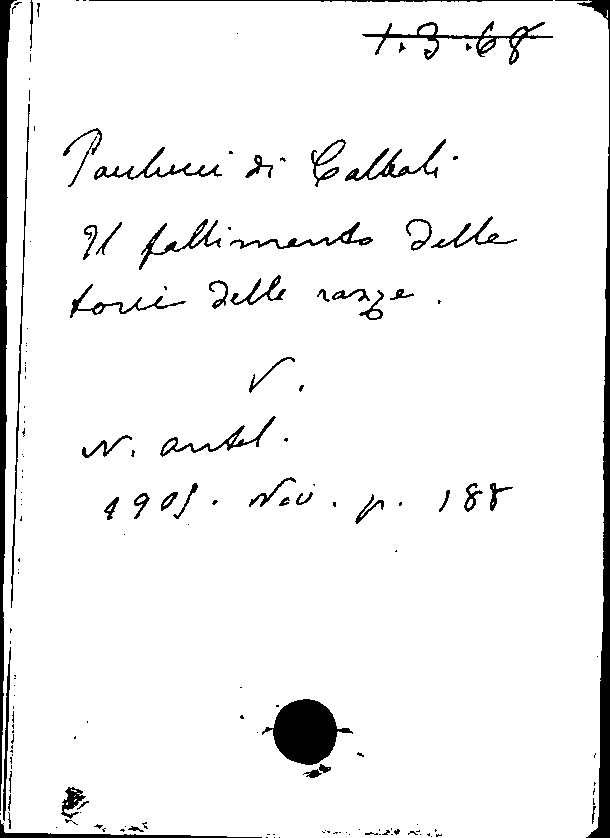 1.3.68
Paulucci di Calboli
Il fallimento delle
torie delle razze.
V.
N. antol.
1905. Nov. p. 188